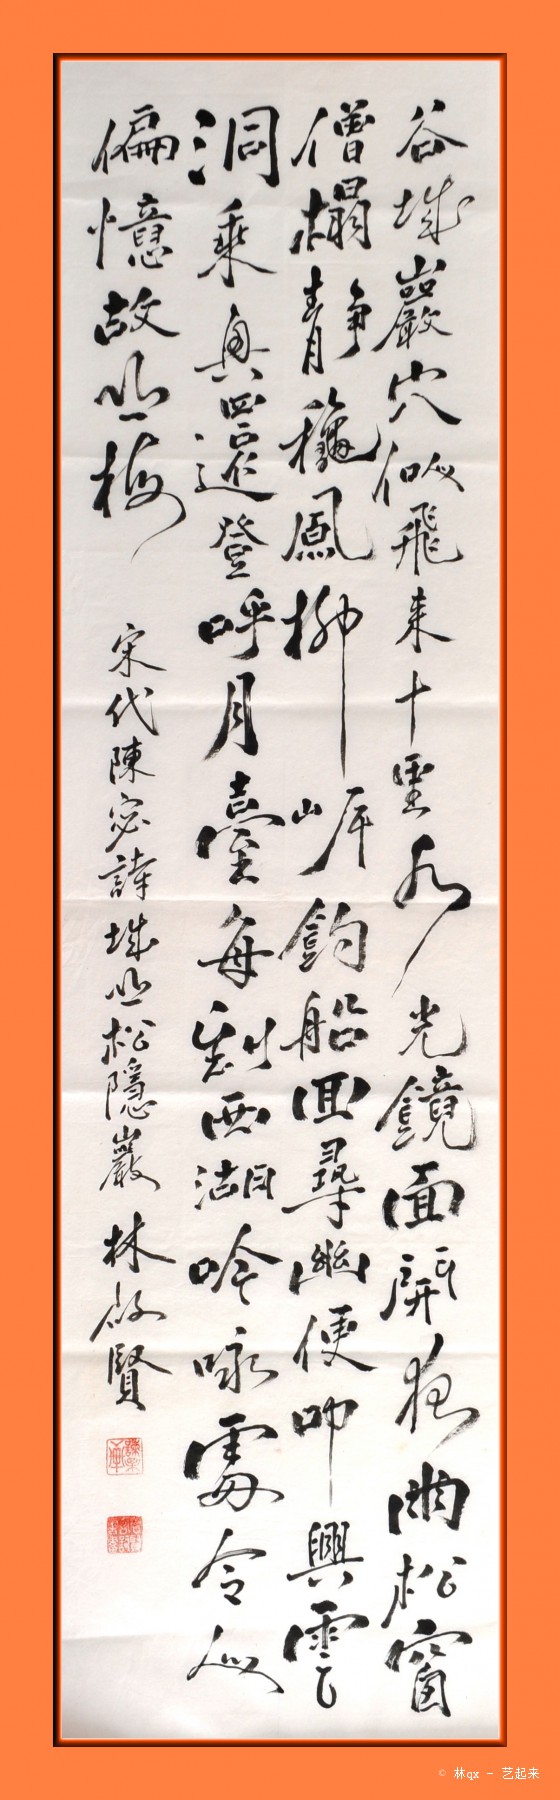 谷城巖穴似飛来十里水光鏡面開夜雨松窗
僧榻静龝風柳岸釣船回尋幽便叩興雲
洞乘興還登呼月臺每到西湖吟咏處令人
偏憶故山梅
宋代陳宓詩城山松隱巖 林啟賢
© 林qx - 艺起来